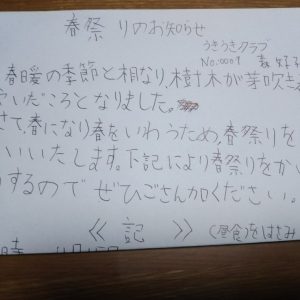 春祭りのお知らせ
うきうきクラブ
No.0001
春暖の季節と相なり、樹木が芽吹き
いだころとなりました。
さて、春になり春をいわうため、春祭りを
いいたします。下記により春祭りをかい
するのでぜひごさんかください。
《 記 》 (昼食)をはさみ